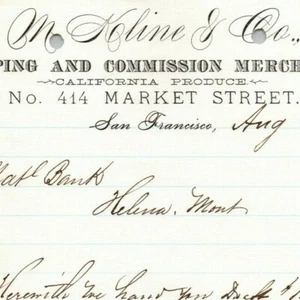 M. Kline & Co.,
PING AND COMMISSION MERCH
CALIFORNIA PRODUCE.
No. 414 MARKET STREET.
San Francisco, Aug
Natl Bank
Helena. Mont
Herewith we hand you